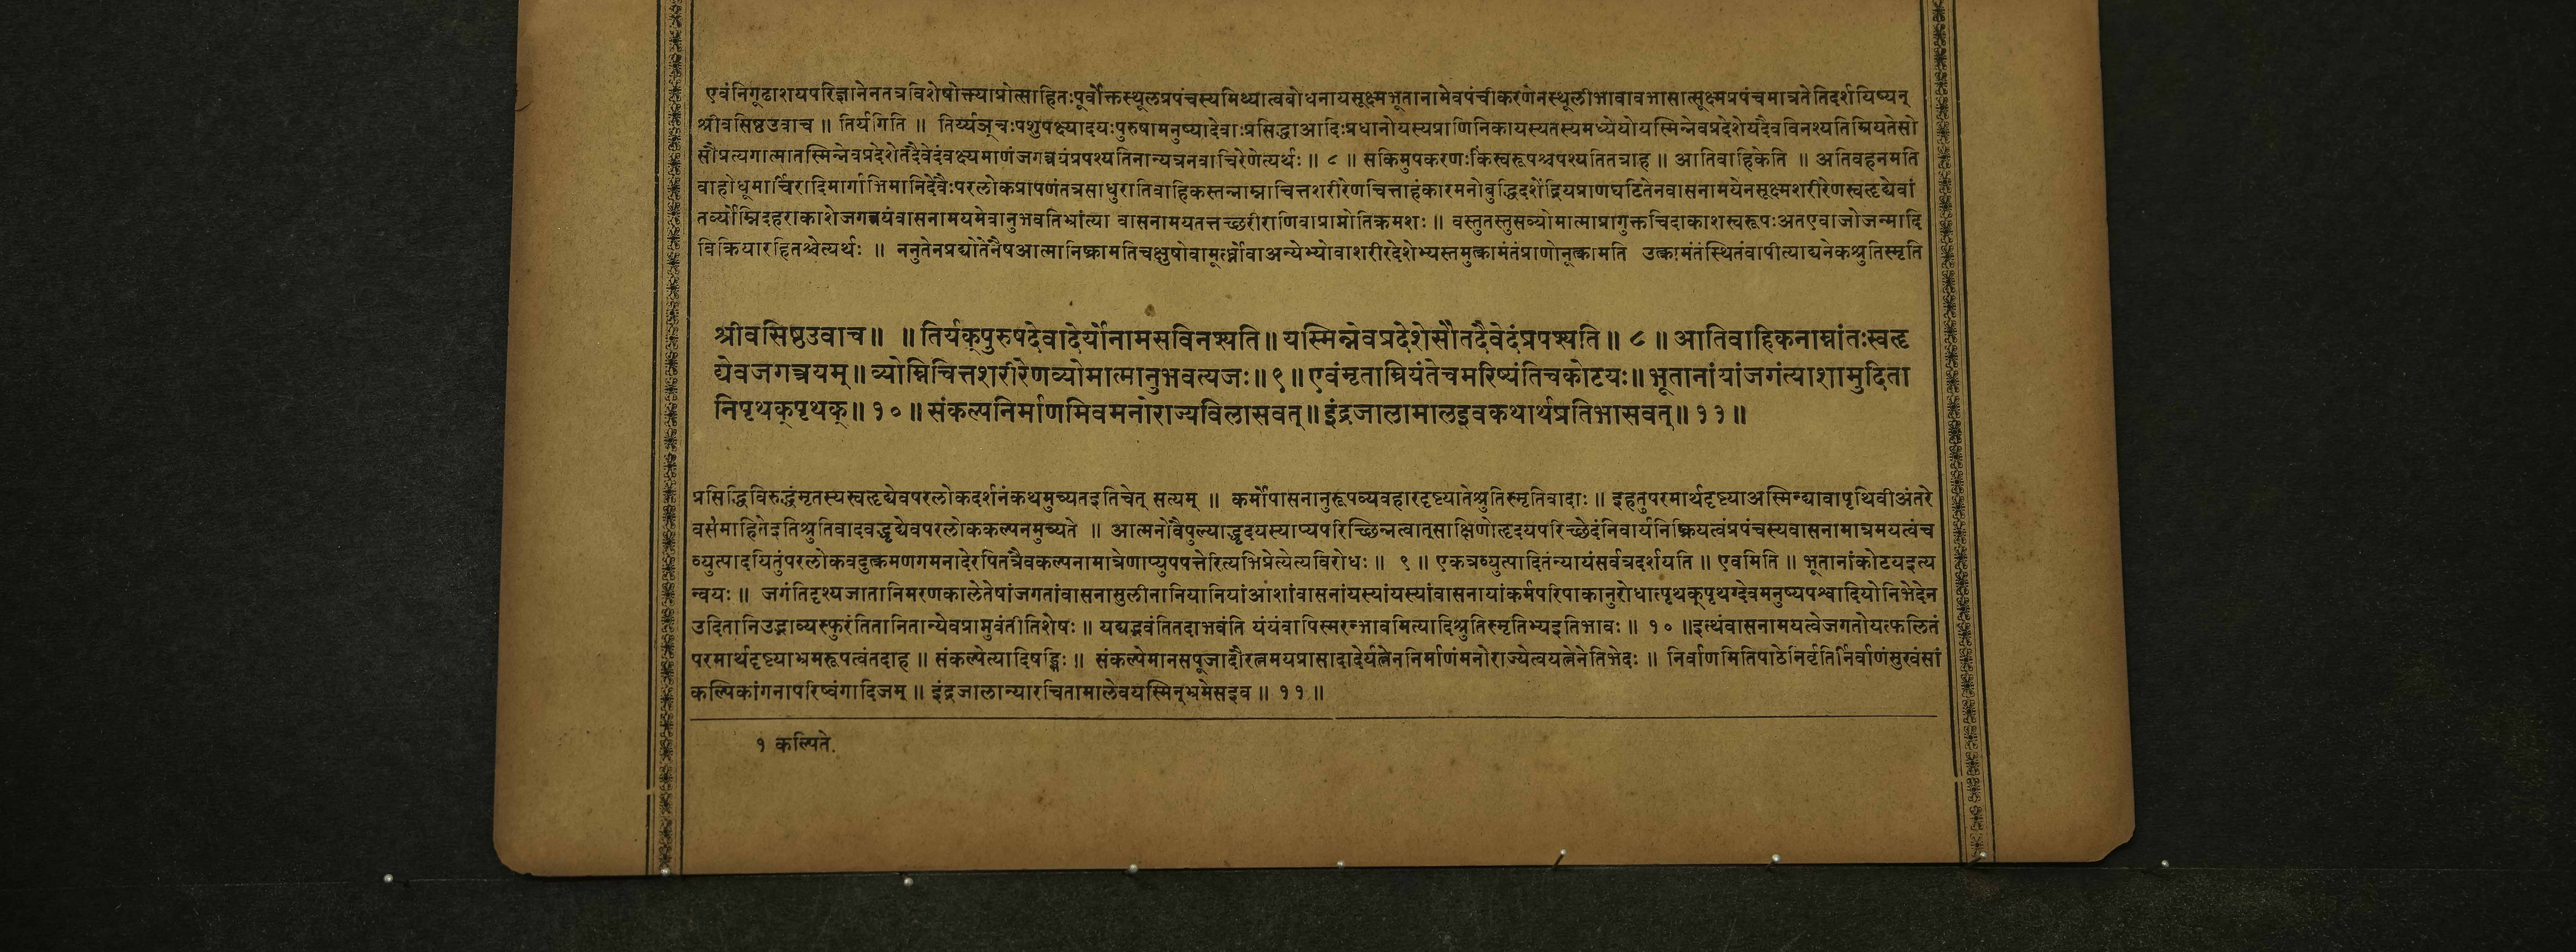 एवंनिगूढाशयपरिज्ञानेनतत्रविशेषोक्त्याप्रोत्साहितःपूर्वोक्तस्थूलप्रपंचस्यमिथ्यात्वबोधनायसूक्ष्मभूतानामेवपंचीकरणेनस्थूलीभावावभासात्सूक्ष्मप्रपंचमात्रतेतिदर्शयिष्यन्
श्रीवसिष्ठउवाच ॥ तिर्यगिति ॥ तिर्य्यञ्चःपशुपक्ष्यादयःपुरुषामनुष्यादेवाःप्रसिद्धाआदिःप्रधानोयस्यप्राणिनिकायस्यतस्यमध्येयोयस्मिन्नेवप्रदेशेयदैवविनश्यतिम्रियतेसो
सौप्रत्यगात्मातस्मिन्नेवप्रदेशेतदैवेदंवक्ष्यमाणंजगत्त्रयंप्रपश्यतिनान्यत्रनवाचिरेणेत्यर्थः ॥ ८ ॥ सकिमुपकरणःकिंस्वरूपश्चपश्यतितत्राह ॥ आतिवाहिकेति ॥ अतिवहनमति
वाहोधूमार्चिरादिमार्गाभिमानिदेवैःपरलोकप्रापणंतत्रसाधुरातिवाहिकस्तन्नाम्नाचित्तशरीरेणचित्ताहंकारमनोबुद्धिदशेंद्रियप्राणघटितेनवासनामयेनसूक्ष्मशरीरेणस्वहृद्येवां
तर्व्योम्निदहराकाशेजगत्त्रयंवासनामयमेवानुभवतिभ्रांत्या वासनामयतत्तच्छरीराणिवाप्राप्नोतिक्रमशः ॥ वस्तुतस्तुसव्योमात्माप्रागुक्तचिदाकाशस्वरूपःअतएवाजोजन्मादि
विक्रियारहितश्चेत्यर्थः ॥ ननुतेनप्रद्योतेनैषआत्मानिष्क्रामतिचक्षुषोवामूर्ध्नोवाअन्येभ्योवाशरीरदेशेभ्यस्तमुत्क्रामंतंप्राणोनूत्क्रामति उत्क्रामंतंस्थितंवापीत्याद्यनेकश्रुतिस्मृति
श्रीवसिष्ठउवाच॥ ॥ तिर्यक्पुरुषदेवादेर्योनामसविनश्यति॥ यस्मिन्नेवप्रदेशेसौतदैवेदंप्रपश्यति॥ ८ ॥ आतिवाहिकनाम्नांतःस्वहृ
द्येवजगत्त्रयम्॥ व्योम्निचित्तशरीरेणव्योमात्मानुभवत्यजः॥ ९॥ एवंमृताम्रियंतेचमरिष्यंतिचकोटयः॥ भूतानांयांजगंत्याशामुदिता
निपृथक्पृथक्॥ १० ॥ संकल्पनिर्माणमिवमनोराज्यविलासवत्॥ इंद्रजालामालइवकथार्थप्रतिभासवत्॥ ११॥
प्रसिद्धिविरुद्धंमृतस्यस्वहृद्येवपरलोकदर्शनंकथमुच्यतइतिचेत् सत्यम् ॥ कर्मोपासनानुरूपव्यवहारदृष्ट्यातेश्रुतिस्मृतिवादाः ॥ इहतुपरमार्थदृष्ट्याअस्मिन्द्यावापृथिवीअंतरे
वसमाहितेइतिश्रुतिवादवद्धृद्येवपरलोककल्पनमुच्यते ॥ आत्मनोवैपुल्याद्धृदयस्याप्यपरिच्छिन्नत्वात्साक्षिणोहृदयपरिच्छेदंनिवार्यनिष्क्रियत्वंप्रपंचस्यवासनामात्रमयत्वंच
व्युत्पादयितुंपरलोकवदुत्क्रमणगमनादेरपितत्रैवकल्पनामात्रेणाप्युपपत्तेरित्यभिप्रेत्येत्यविरोधः ॥ ९ ॥ एकत्रव्युत्पादितंन्यायंसर्वत्रदर्शयति ॥ एवमिति ॥ भूतानांकोटयइत्य
न्वयः ॥ जगंतिदृश्यजातानिमरणकालेतेषांजगतांवासनासुलीनानियानियांआशांवासनांयस्यांयस्यांवासनायांकर्मपरिपाकानुरोधात्पृथक्पृथग्देवमनुष्यपश्वादियोनिभेदेन
उदितानिउद्भाव्यस्फुरंतितानितान्येवप्राप्नुवंतीतिशेषः ॥ यद्यद्भवंतितदाभवंति यंयंवापिस्मरन्भावमित्यादिश्रुतिस्मृतिभ्यइतिभावः ॥ १० ॥इत्थंवासनामयत्वेजगतोयत्फलितं
परमार्थदृष्ट्याभ्रमरूपत्वंतदाह ॥ संकल्पेत्यादिषड्भिः ॥ संकल्पेमानसपूजादौरत्नमयप्रासादादेर्यत्नेननिर्माणंमनोराज्येत्वयत्नेनेतिभेदः ॥ निर्वाणमितिपाठेनिर्वृतिर्निर्वाणंसुखंसां
कल्पिकांगनापरिष्वंगादिजम् ॥ इंद्रजालान्यारचितामालेवयस्मिन्भ्रमेसइव ॥ ११ ॥
१ कल्पिते.